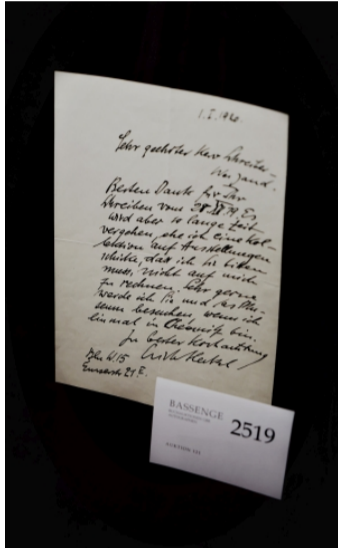 1. I. 1920.
Sehr geehrter Herr Schreiber-
Weigand.
Besten Dank für Ihr
Schreiben vom 28 XII 19. Es
wird aber so lange Zeit
vergehen, ehe ich eine Kol-
lektion auf Ausstellungen
schicke, daß ich Sie bitten
muss, nicht auf mich
zu rechnen. Sehr gerne
werde ich Sie und das Mu-
seum besuchen, wenn ich
einmal in Chemnitz bin.
In bester Hochachtung
Bln W. 15 Erich Heckel
21 II.
BASSENGE
2519
AUKTION